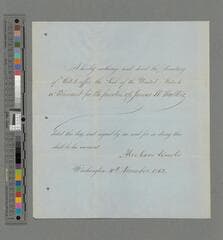 I hereby authorize and direct the Secretary
of State to affix the Seal of the United States
to Warrant for the pardon of James W.
dated this day, and signed by me and for so doing this
shall be his warrant.
Abraham Lincoln
Washington November 1862.